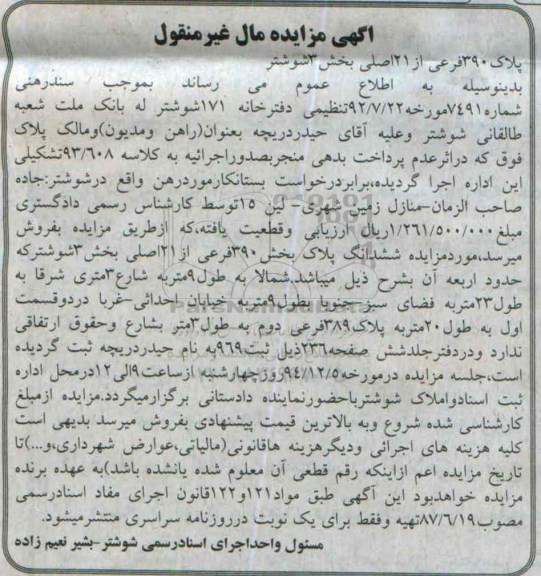 آگهی مزایده مال غیرمنقول
پلاک۳۹۰فرعی از۲۱اصلی بخش۳شوشتر
بدینوسیله به اطلاع عموم می رساند بموجب سندرهنی
شماره۷۴۹۱مورخه۹۲/۷/۲۲تنظیمی دفترخانه ۱۷۱شوشتر له بانک ملت شعبه
طالقانی شوشتر وعلیه آقای حیدردریچه بعنوان(راهن ومدیون)ومالک پلاک
فوق که دراثرعدم پرداخت بدهی منجربصدوراجرائیه به کلاسه ۹۳/۶۰۸تشکیلی
این اداره اجرا گردیده،برابردرخواست بستانکارموردرهن واقع درشوشتر:جاده
صاحب الزمان-منازل زمین شهری- لین ۱۵توسط کارشناس رسمی دادگستری
مبلغ۱/۲۶۱/۵۰۰/۰۰۰ریال ارزیابی وقطعیت یافته،که ازطریق مزایده بفروش
میرسد،موردمزایده ششدانگ پلاک بخش۳۹۰فرعی از۲۱اصلی بخش۳شوشترکه
حدود اربعه آن بشرح ذیل میباشد.شمالا به طول۹متربه شارع۳متری شرقا به
طول۲۳متربه فضای سبز-جنوبا بطول۹متربه خیابان احداثی-غربا دردوقسمت
اول به طول۲۰متربه پلاک۳۸۹فرعی دوم به طول۳متر بشارع وحقوق ارتفاقی
ندارد ودردفترجلدشش صفحه۲۳۶ذیل ثبت۹۶۹به نام حیدردریچه ثبت گردیده
است،جلسه مزایده درمورخه۹۴/۱۲/۵روزچهارشنبه ازساعت۹الی۱۲درمحل اداره
ثبت اسنادواملاک شوشترباحضورنماینده دادستانی برگزارمیگردد.مزایده ازمبلغ
کارشناسی شده شروع وبه بالاترین قیمت پیشنهادی بفروش میرسد بدیهی است
کلیه هزینه های اجرائی ودیگرهزینه هاقانونی(مالیاتی،عوارض شهرداری،و...)تا
تاریخ مزایده اعم ازاینکه رقم قطعی آن معلوم شده یانشده باشد)به عهده برنده
مزایده خواهدبود این آگهی طبق مواد۱۲۱و۱۲۲قانون اجرای مفاد اسنادرسمی
مصوب۸۷/۶/۱۹تهیه وفقط برای یک نوبت درروزنامه سراسری منتشرمیشود.
مسئول واحداجرای اسنادرسمی شوشتر-بشیر نعیم زاده